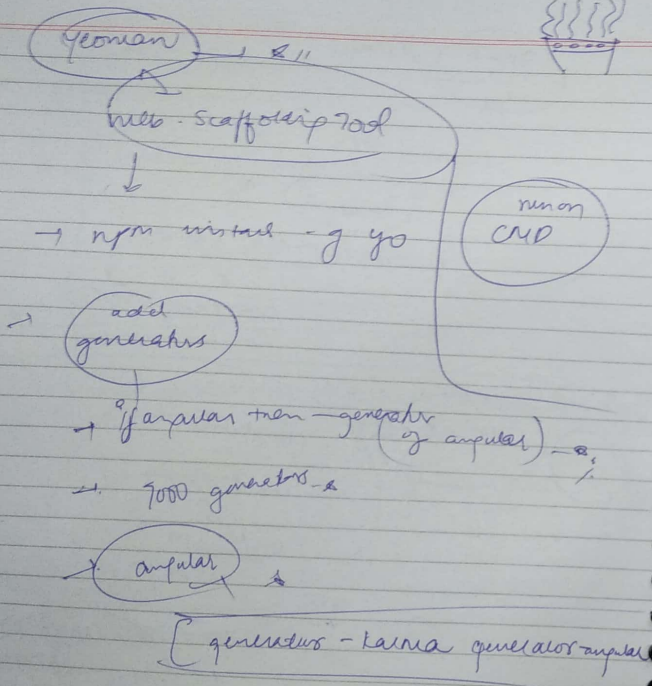 yeoman
web-scaffolding Tool
→ npm install -g yo
run on
CMD
→ add
generators
→ if angular then - generator
(of angular)
→ 9000 generators
→ angular
[generator - karma generator-angular